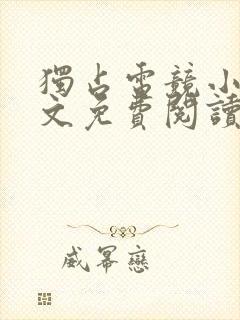 獨占電競小
文免費閱讀
威冪戀